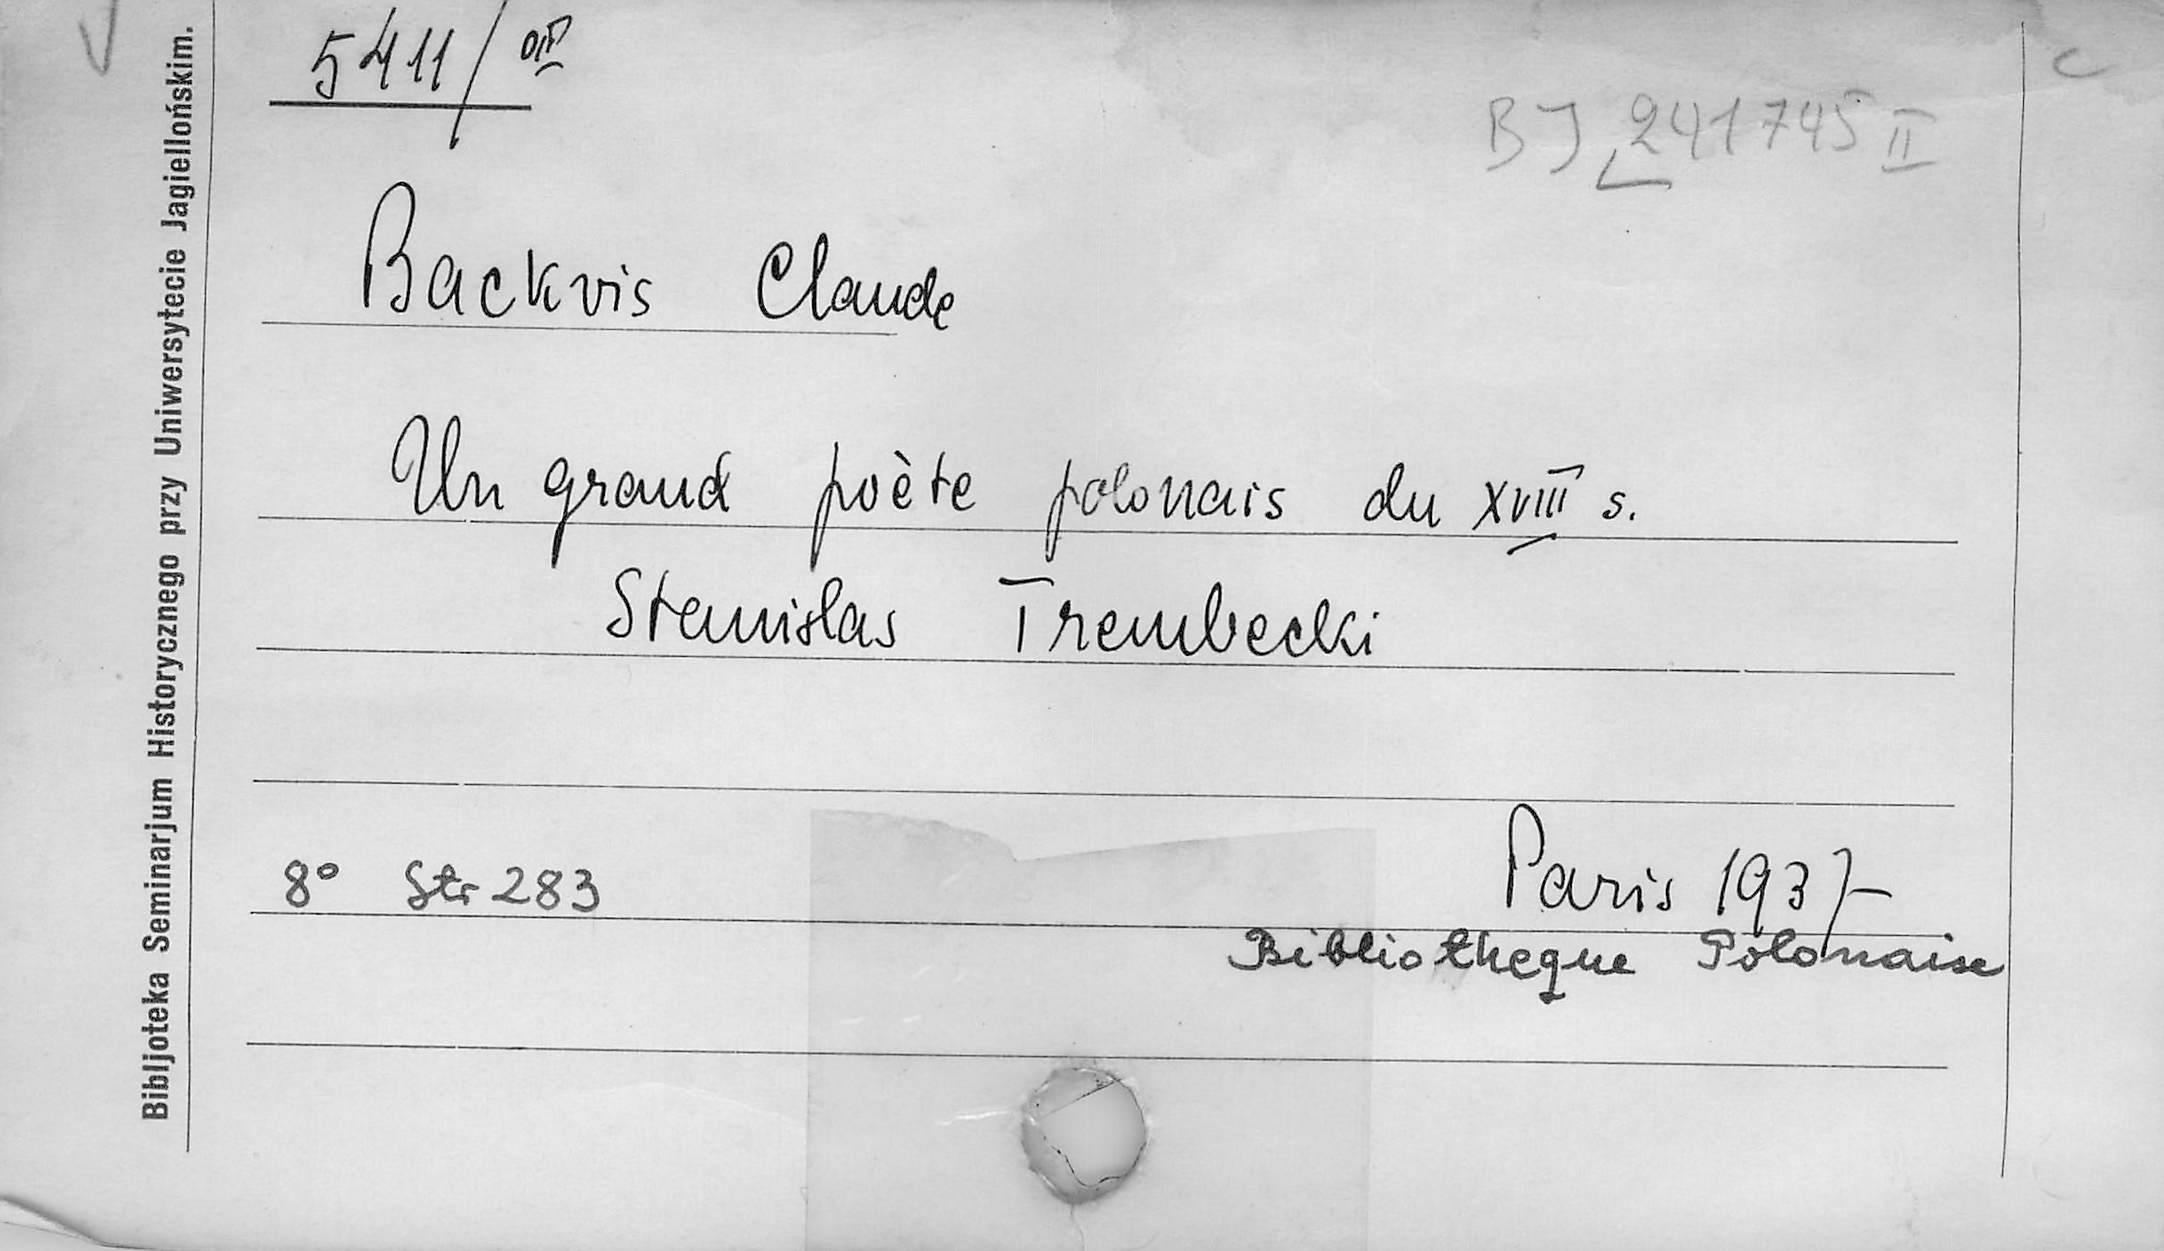 5411/
BJ 241745 II
Backvis Claude
Un grand poète polonais du XVIII s.
Stanislas Trembecki
8° Str 283
Paris 1937
Bibliotheque Polonaise
Bibljoteka Seminarjum Historycznego przy Uniwersytecie Jagiellońskim.